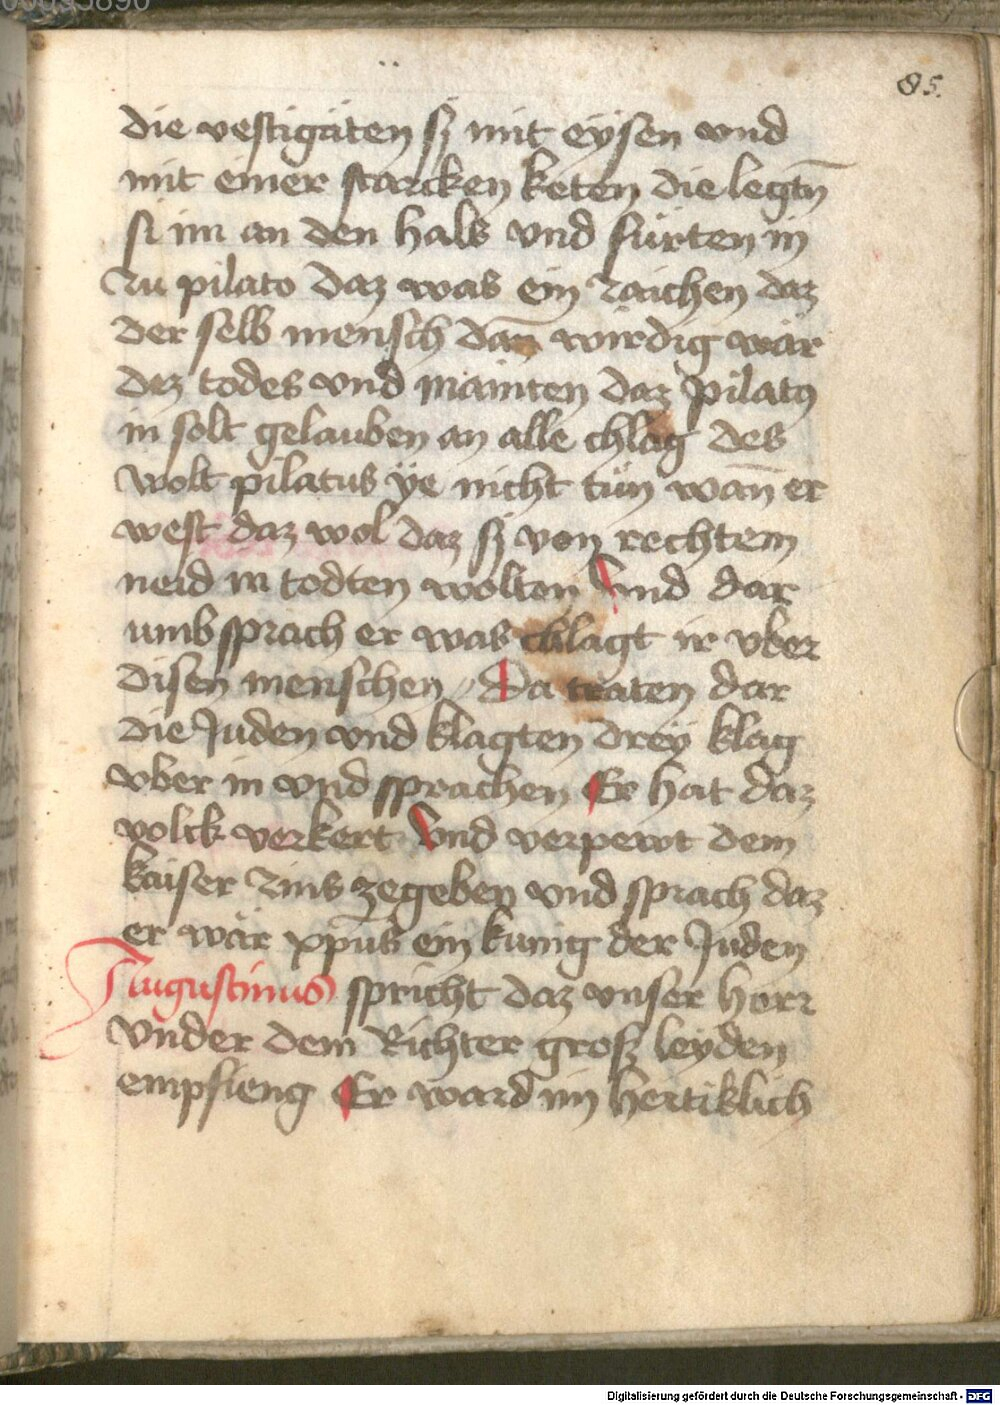 85.
die vestigäten sy mit eÿsen vnd
mit einer starcken keten die legtn̄
si im an den hals vnd fürten in
zu pilato daz was ein zaichen daz
der selb mensch dan̄ wirdig wär
dez todes vnd mainten daz pilatꝰ
in solt gelauben an alle chlag des
wolt pilatus ÿe nicht tün wan̄ er
west daz wol daz sy von rechtem
neid in todten wolten Vnd dar
umb sprach er was chlagt ir vber
disen menschen Da traten dar
die Juden vnd klagten dreÿ klag
vber in vnd sprachen Er hat daz
volck verkert Vnd verpewt dem
kaiser zins zegeben vnd sprach daz
er wär xp̄us ein kunig der Juden
Augustinus spricht daz vnser herr
Vnder dem Richter grosz leyden
empfieng Er ward im hertiklich
Digitalisierung gefördert durch die Deutsche Forschungsgemeinschaft - DFG